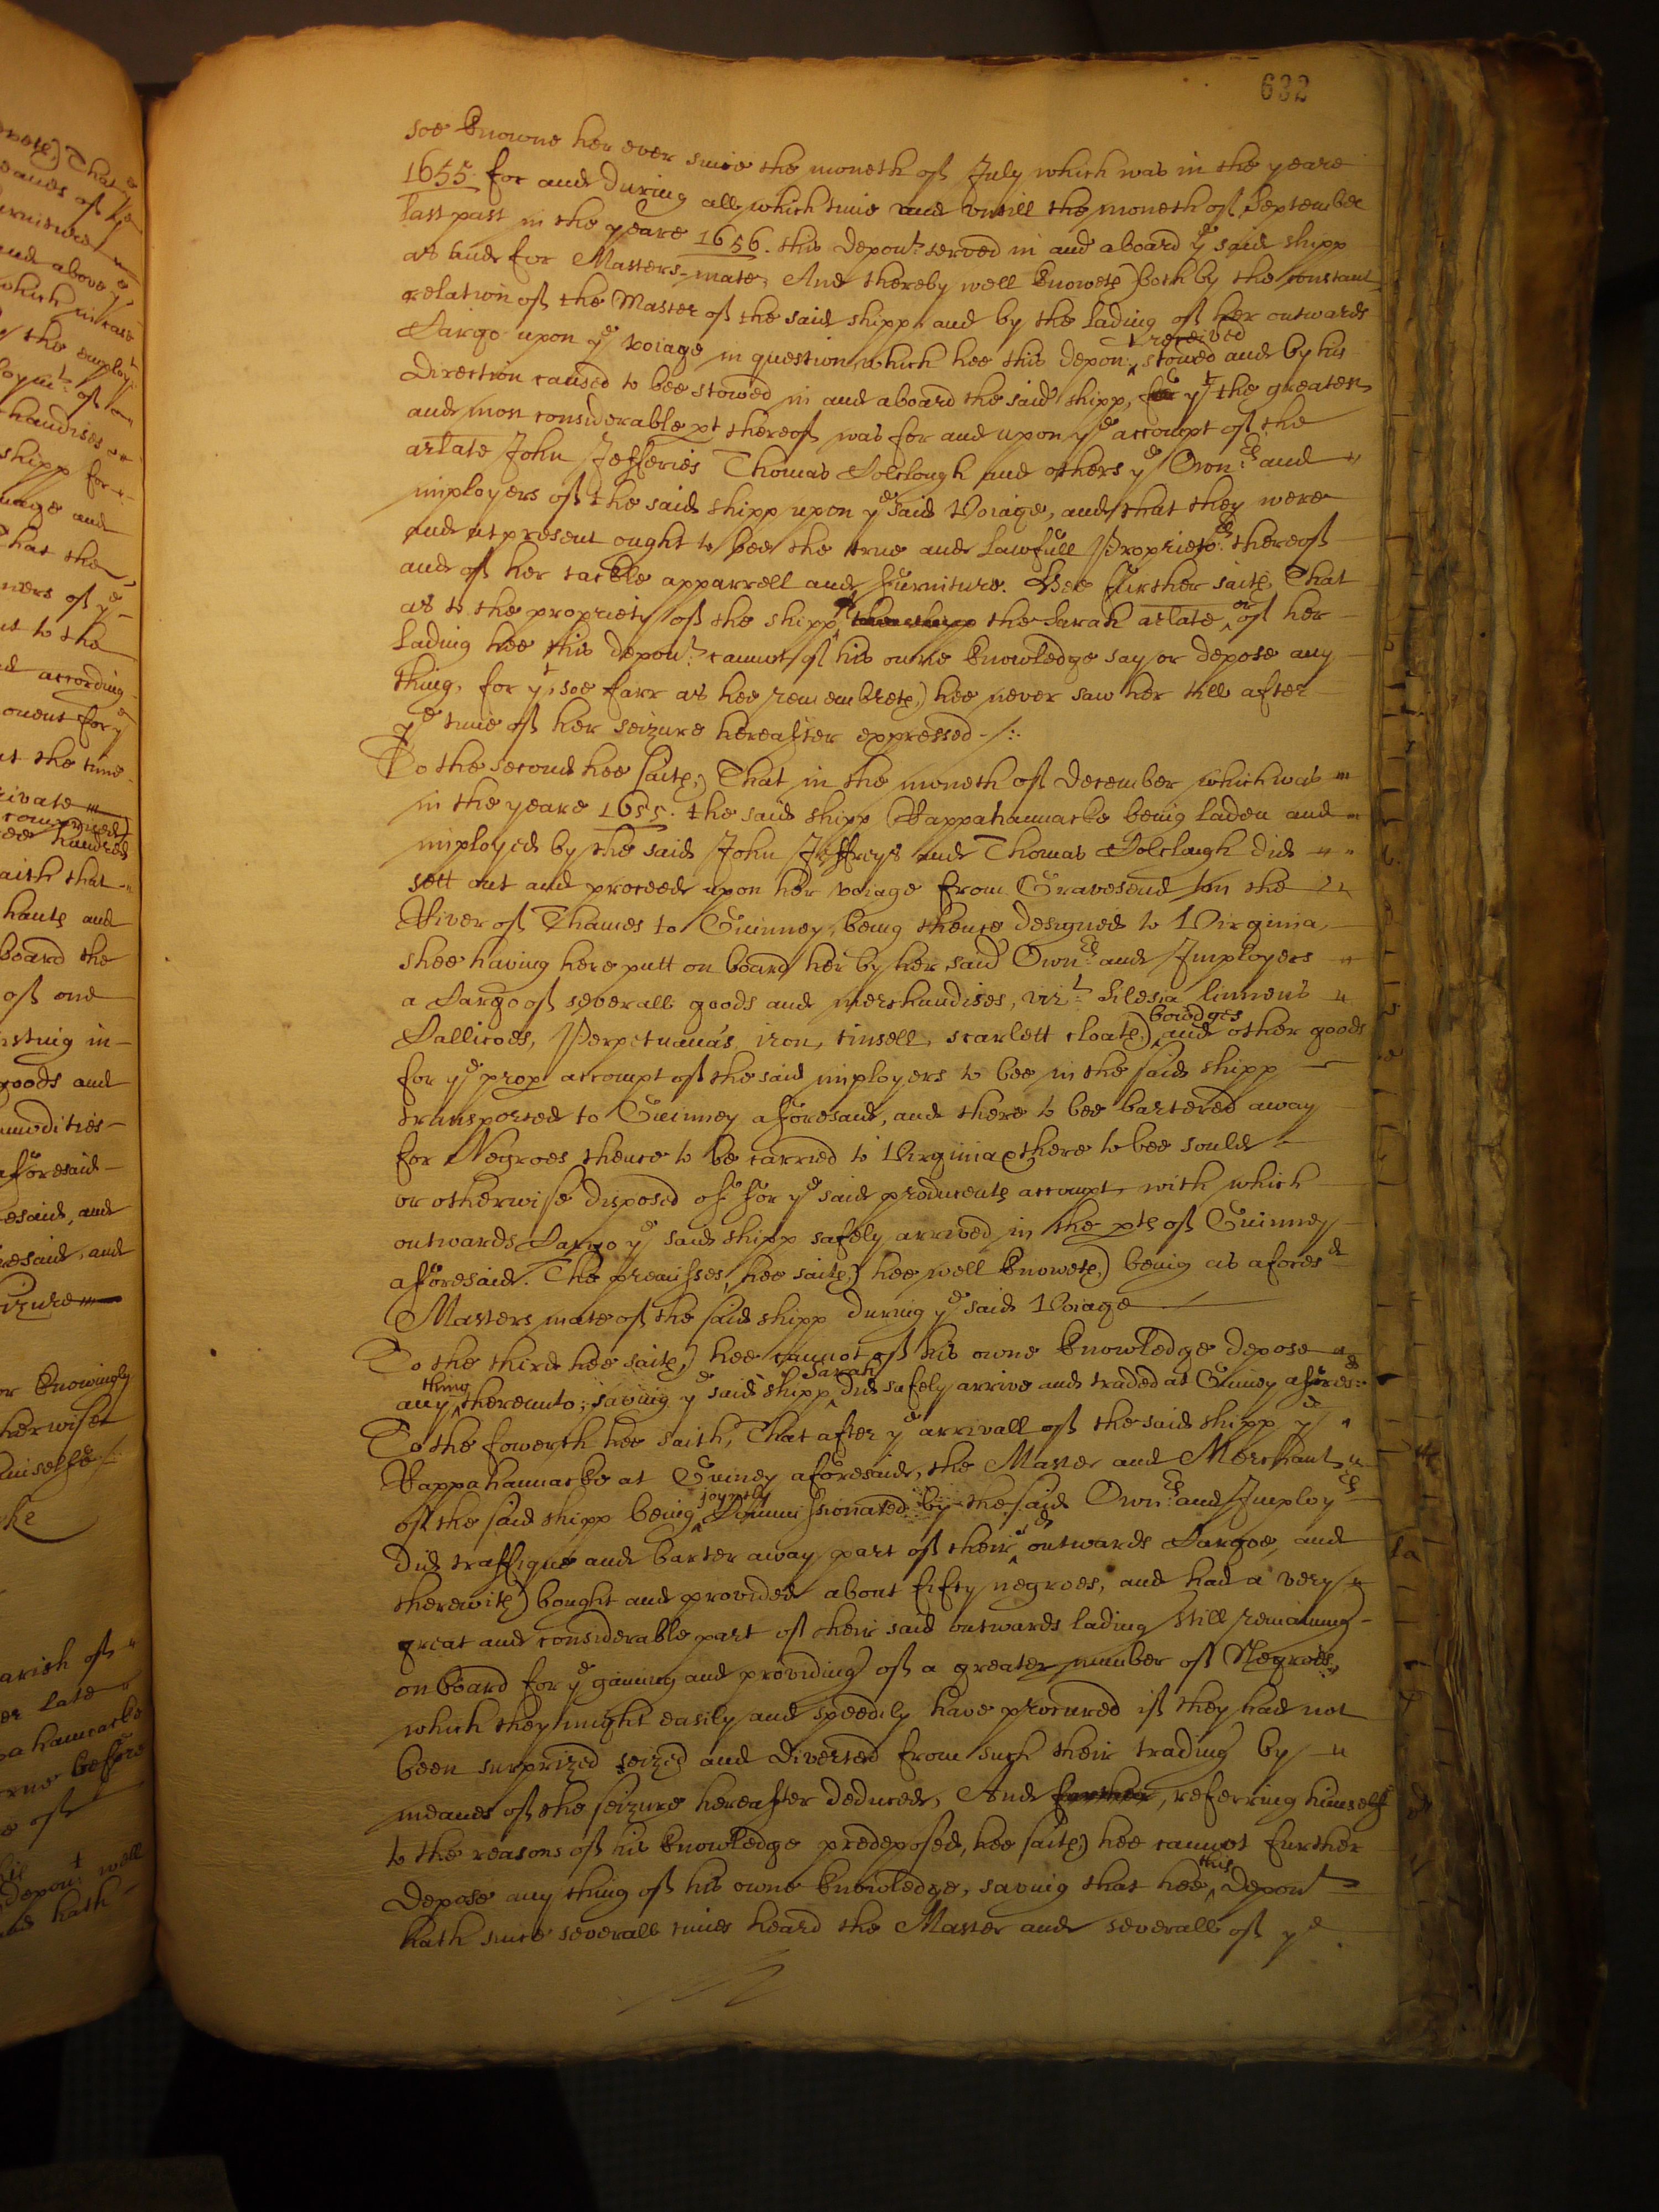 632
soe knowne her ever since the moneth of July which was in the yeare
1655. for and during all which time and untill the moneth of September
last past in the yeare 1656. this depont served in and aboard ye said shipp
as and for Masters-mate, And thereby well knoweth both by the constant
relation of the Master of the said shipp and by the lading of her outwards
Cargo upon ye voiage in question, which hee this depont received stowed and by his
direction caused to bee stowed in and aboard the said shipp, yt the greatest
and most considerable pt thereof was for and upon ye accompt of the
arlate John Jefferies Thomas Colclough and others ye Ownrs and
imployers of the said shipp upon ye said Voiage, and that they were
and at present ought to bee the true and lawfull Proprietors thereof
and of her tackle apparrell and furniture. Hee further saith, That
as to the propriety of the shipp the Sarah arlate, or of her
lading hee this depont cannot of his owne knowledge say or depose any
thing, for yt, soe farr as hee remembreth, hee never saw her till after
ye time of her seizure hereafter expressed
To the second hee saith, That in the moneth of December which was
in the yeare 1655. the said shipp Rappahannacke being laden and
imployed by the said John Jeffreys and Thomas Colclough did
sett out and proceede upon her voiage from Gravesend in the
River of Thames to Guinney, being thence designed to Virginia,
shee having here putt on board her by her said Ownrs and Imployers
a Cargo of severall goods and merchandises, vizt Silesia linnens
Callicoes, Perpetuana's, iron, tinsell, scarlett cloath, bowdges and other goods
for ye prop accompt of the said imployers to bee in the said shipp
transported to Guinney aforesaid, and there to bee bartered away
for Negroes thence to be carried to Virginia & there to bee sould
or otherwise disposed of for ye said producents accompt, with which
outwards Cargo ye said shipp safely arrived in the pts of Guinney
aforesaid. The premisses, hee saith, hee well knoweth, being as aforesd
Masters mate of the said shipp during ye said Voiage
To the third hee saith, hee cannot of his owne knowledge depose
any thing thereunto; saving ye said shipp Sarah did safely arrive and traded at Guiney aforesd
To the fowerth hee saith, That after ye arrivall of the said shipp ye
Rappahannacke at Guiney aforesaid, the Master and Merchant
of the said shipp being joyntly Commissionated by the said Ownrs and Imployrs
did traffique and barter away part of their sd outwards Cargoe, and
therewith bought and provided about fifty negroes, and had a very
great and considerable part of their said outwards lading still remaining
on board for ye gaining and providing of a greater number of Negroes,
which they might easily and speedily have procured if they had not
been surprized seized and diverted from such their trading by
meanes of the seizure hereafter deduced, And further, referring himself
to the reasons of his knowledge predeposed, hee saith, hee cannot further
depose any thing of his owne knowledge, saving that hee this depont
hath since severall times heard the Master and severall of ye